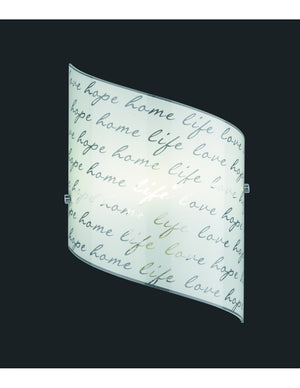 love hope home life love
hope home life love
hope home life love
hope home life love
hope home life love
hope home life love
hope home life love
hope home life love hope
home life love hope